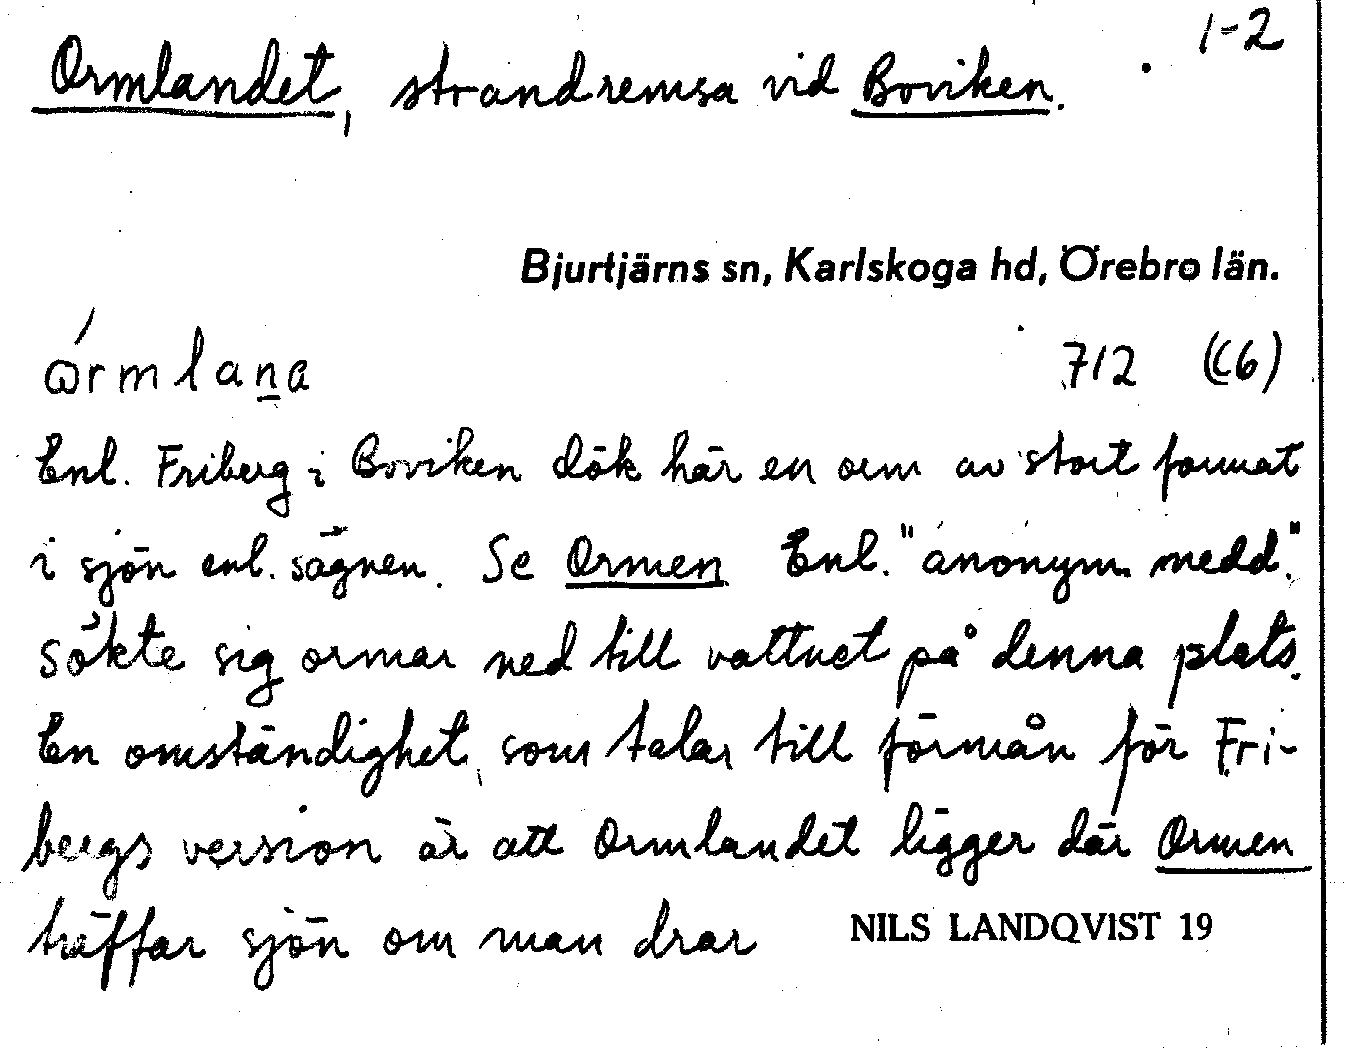 1-2
Ormlandet, strandremsa vid Boviken.
Bjurtjärns sn, Karlskoga hd, Örebro län.
712 (C6)
Enl. Friberg i Boviken dök här en orm av stort format
i sjön enl. sägnen. Se Ormen Enl. "anonym medd."
sökte sig ormar ned till vattnet på denna plats.
En omständighet, som talar till förmån för Fri-
bergs version är att Ormlandet ligger där Ormen
träffar sjön om man drar
NILS LANDQVIST 19